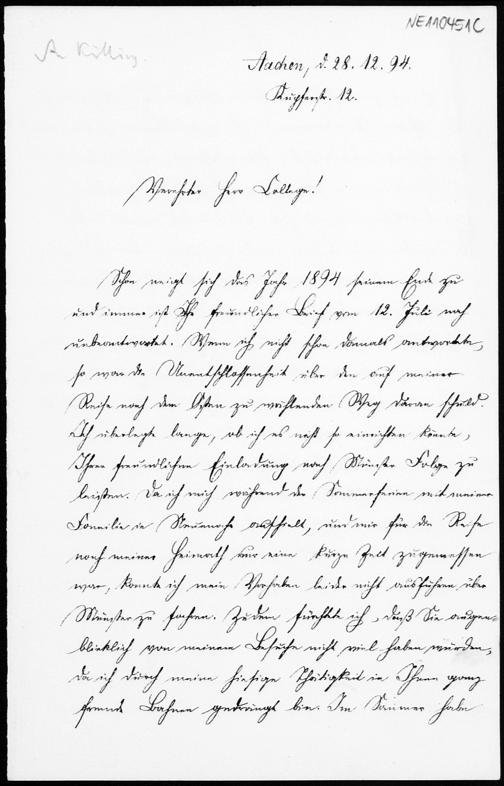 NE110451C
An Killing.
Aachen, d. 28. 12. 94.
Kupferstr. 12.
Verehrter Herr College!
Schon neigt sich das Jahr 1894 seinem Ende zu
und immer ist Ihr freundlicher Brief vom 12. Juli noch
unbeantwortet. Wenn ich nicht schon damals antwortete,
so war die Unentschlossenheit über den auf meiner
Reise nach dem Osten zu wählenden Weg daran schuld.
Ich überlegte lange, ob ich es nicht so einrichten könnte,
Ihrer freundlichen Einladung nach Münster Folge zu
leisten. Da ich mich während der Sommerferien mit meiner
Familie in aufhielt, und mir für die Reise
nach meiner Heimath nur eine kurze Zeit zugemessen
war, konnte ich mein Vorhaben leider nicht ausführen über
Münster zu fahren. Zudem fürchtete ich, daß Sie augen-
blicklich von meinem Besuche nicht viel haben würden,
da ich durch meine hiesige Thätigkeit in Ihnen ganz
fremde Bahnen gedrängt bin. Im Sommer habe